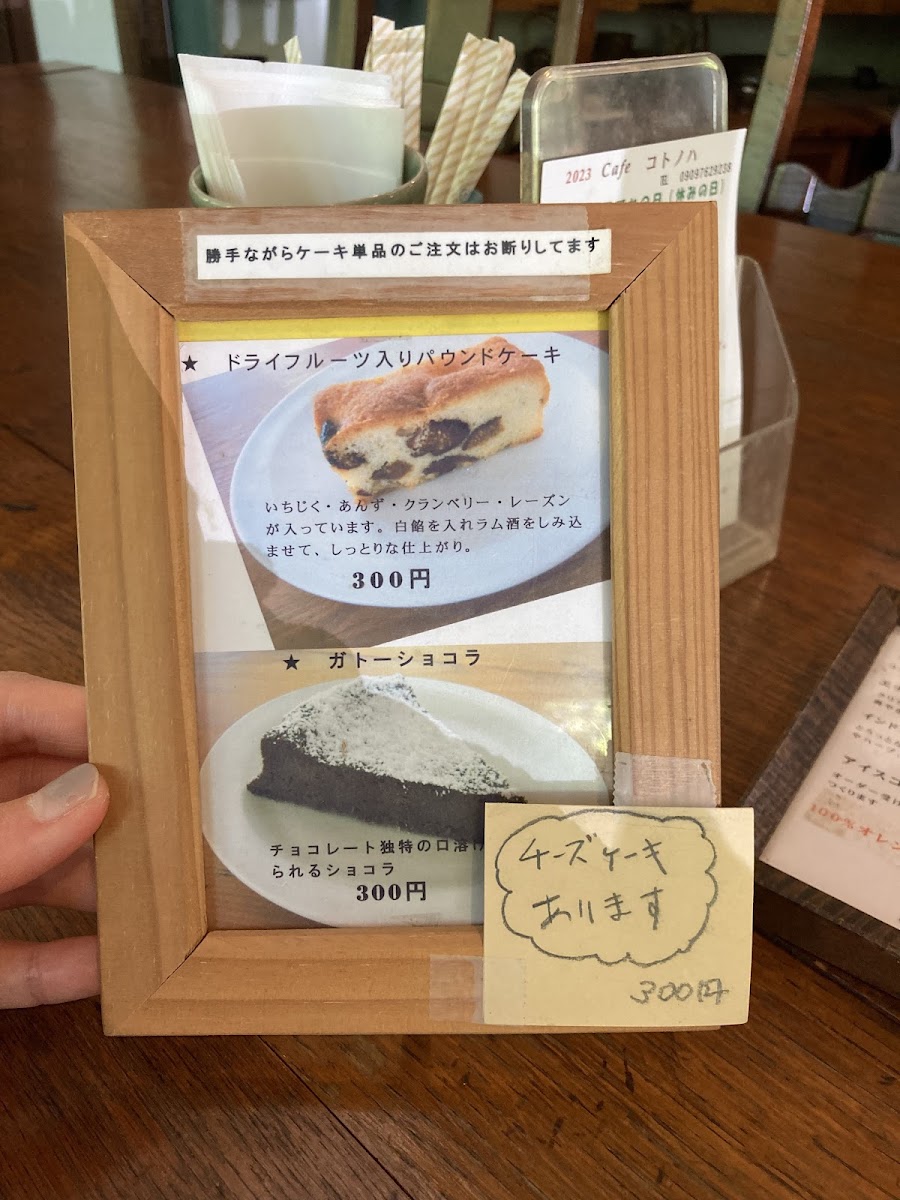 2023 Cafe コトノハ
☎ 09097629238
勝手ながらケーキ単品のご注文はお断りしてます
★ ドライフルーツ入りパウンドケーキ
いちじく・あんず・クランベリー・レーズン
が入っています。白餡を入れラム酒をしみ込
ませて、しっとりな仕上がり。
300円
★ ガトーショコラ
チョコレート独特の口溶け
られるショコラ
300円
チーズケーキ
あります
300円
インド
アイスコ
オーダー受け
つくります
100%オレン